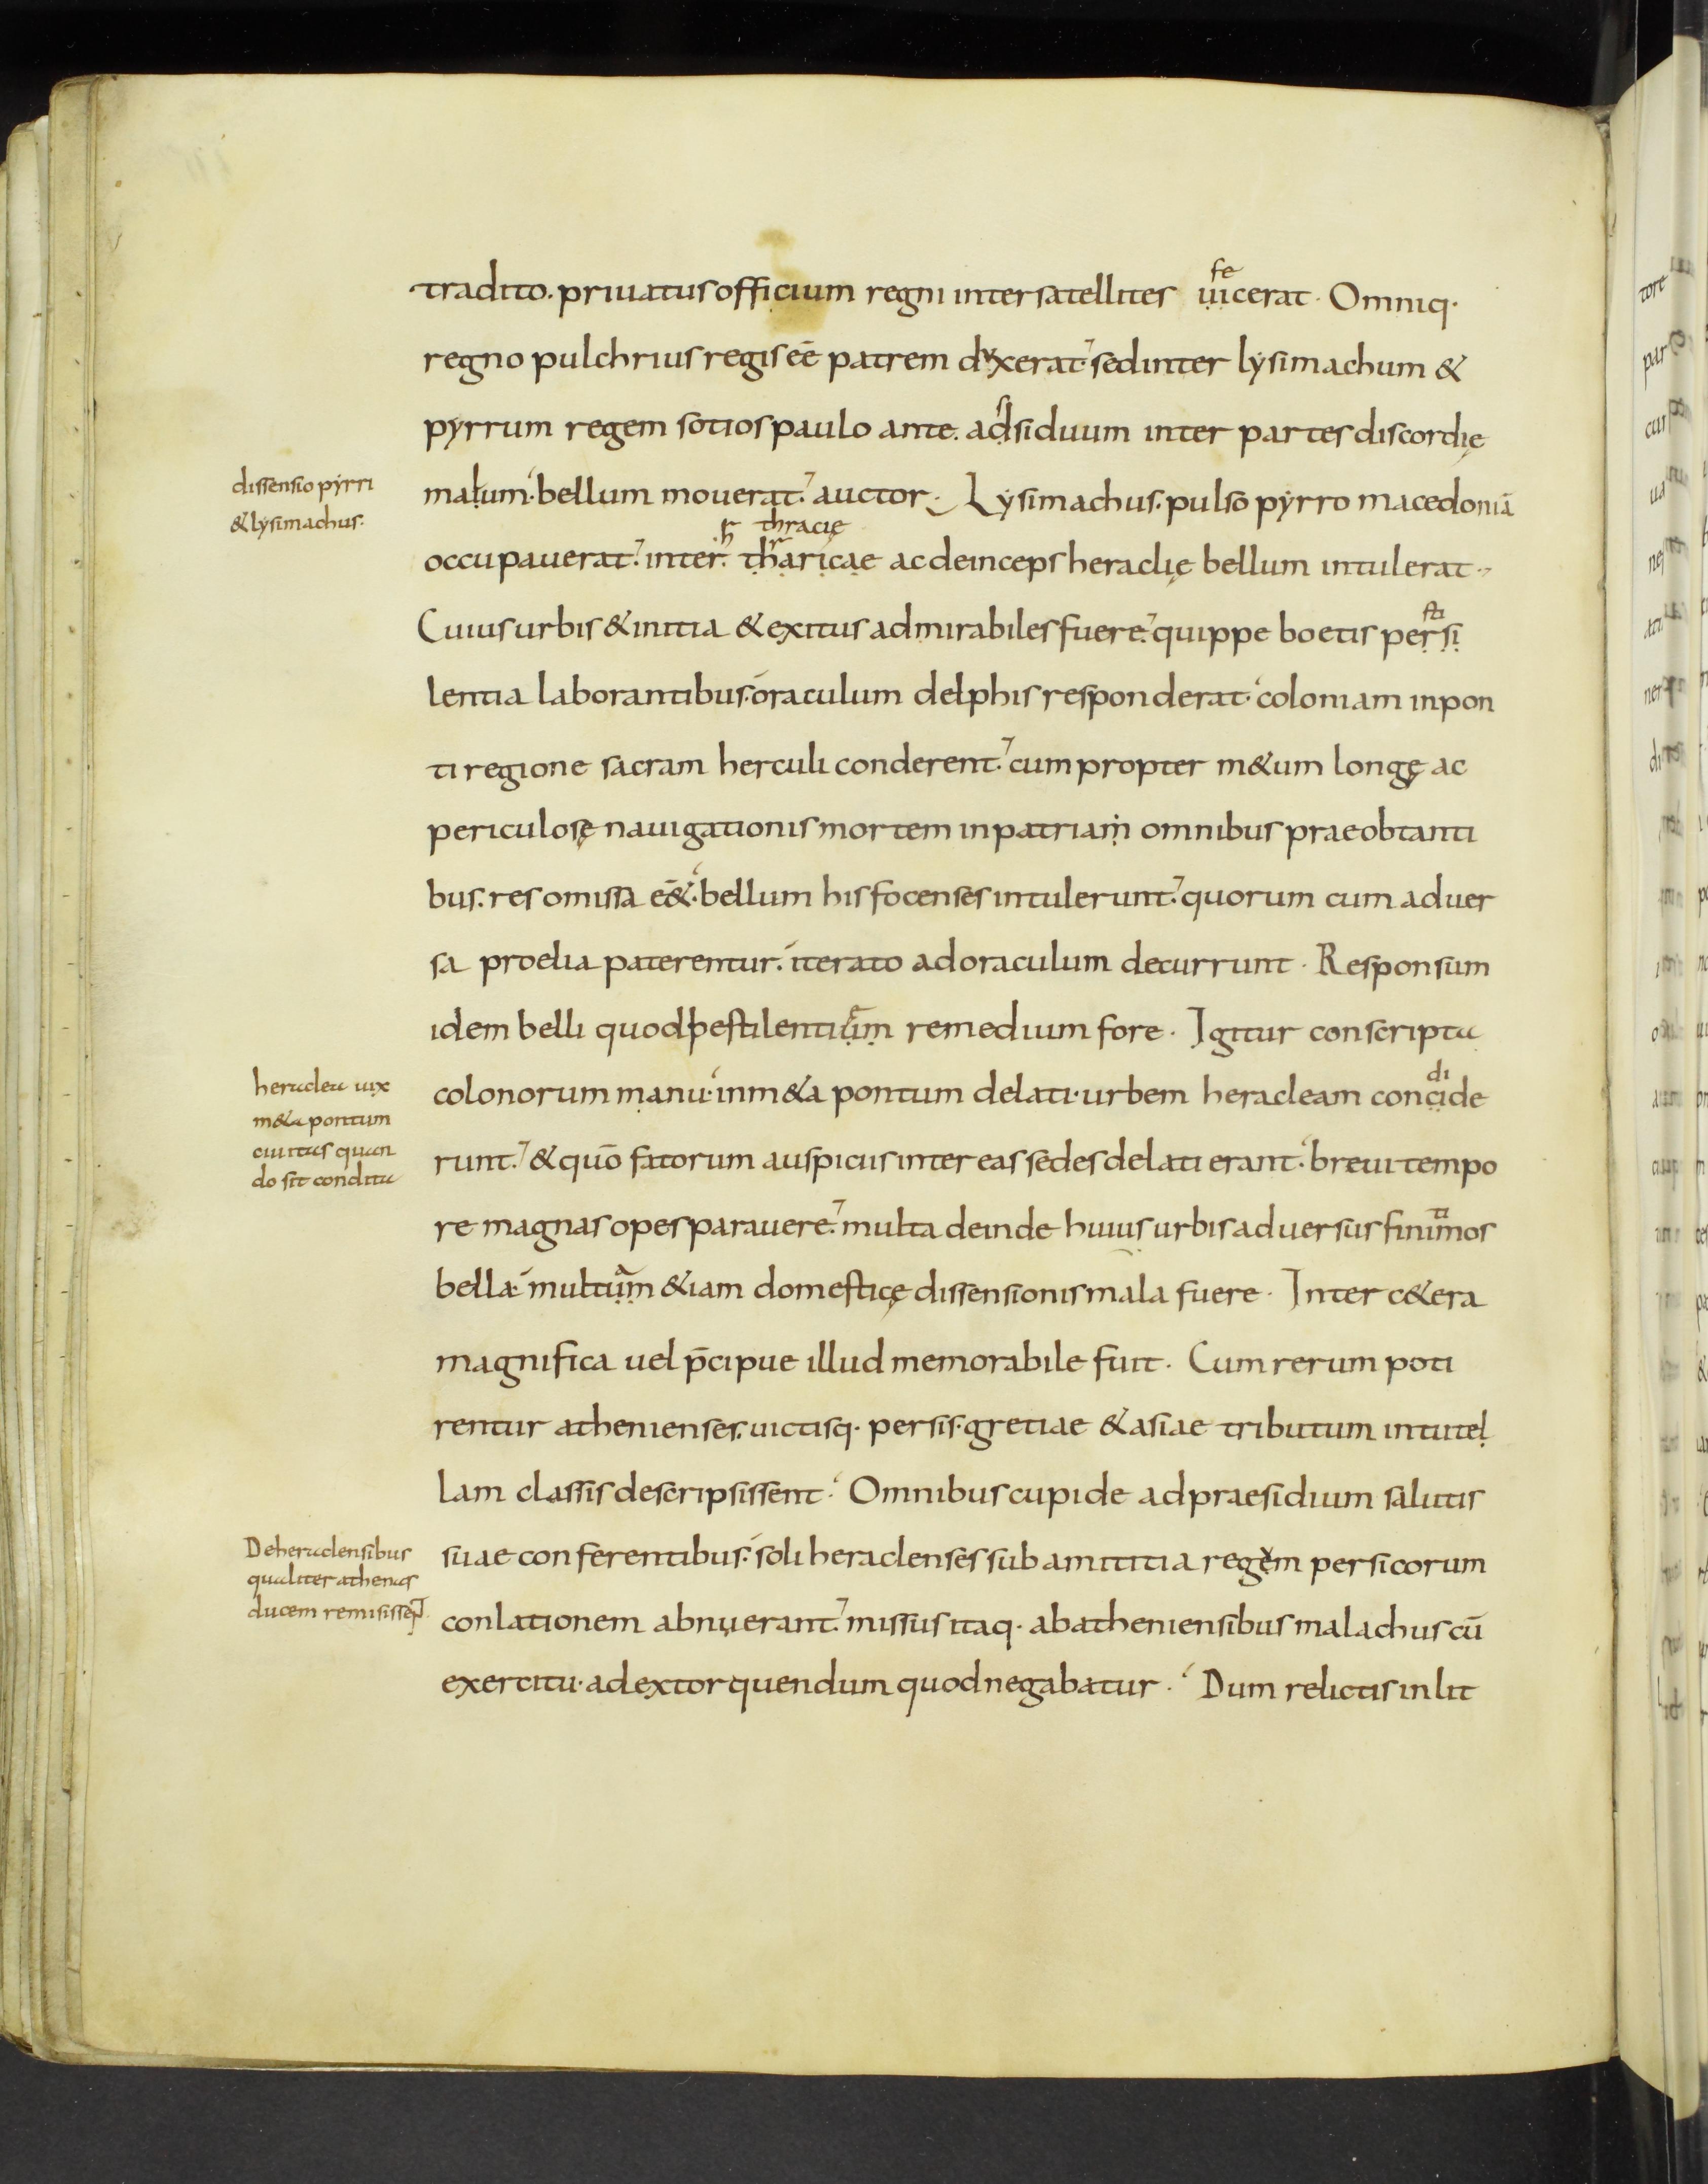 tradito. priuatus officium regni inter satellites uicerat. Omniq.
fe
regno pulchrius regis eē patrem dyxerat. sed inter lysimachum &
pyrrum regem sotios paulo ante. adsiduum inter partes discordię
s
malum. bellum mouerat. auctor. Lysimachus. pulso pyrro macedoniā
dissensio pyrri
& lysimachus.
thracię
occupauerat. inter. tharicae ac deinceps heraclię bellum intulerat.
Cuius urbis & initia & exitus admirabiles fuere. quippe boetis persi
sti
lentia laborantibus. oraculum delphis responderat. coloniam in pon
ti regione sacram herculi conderent. cum propter m&um longę ac
periculosę nauigationis mortem in patriam omnibus praeobtanti
bus. res omissa ē &. bellum his focenses intulerunt. quorum cum aduer
sa proelia paterentur. iterato ad oraculum decurrunt. Responsum
idem belli quod pestilentium remedium fore. Igitur conscripta
colonorum manu. in m&a pontum delati. urbem heracleam concide
di
heraclea iux
m&a pontum
ciuitas quan
do sit condita
runt. & quō fatorum auspicus inter eas sedes delati erant. breui tempo
re magnas opes parauere. multa deinde huius urbis aduersus finimos
ti
bella. multum &iam domesticę dissensionis mala fuere. Inter c&era
a
magnifica uel p̄cipue illud memorabile fuit. Cum rerum poti
rentur athenienses. uictisq. persis. gretiae & asiae tributum in tutel
lam classis descripsissent. Omnibus cupide ad praesidium salutis
suae conferentibus. soli heraclenses sub amititia regem persicorum
De heraclensibus
qualiter athenas
ducem remisissent
conlationem abnuerant. missus itaq. ab atheniensibus malachus cū
exercitu. ad extorquendum quod negabatur. Dum relictis in lit